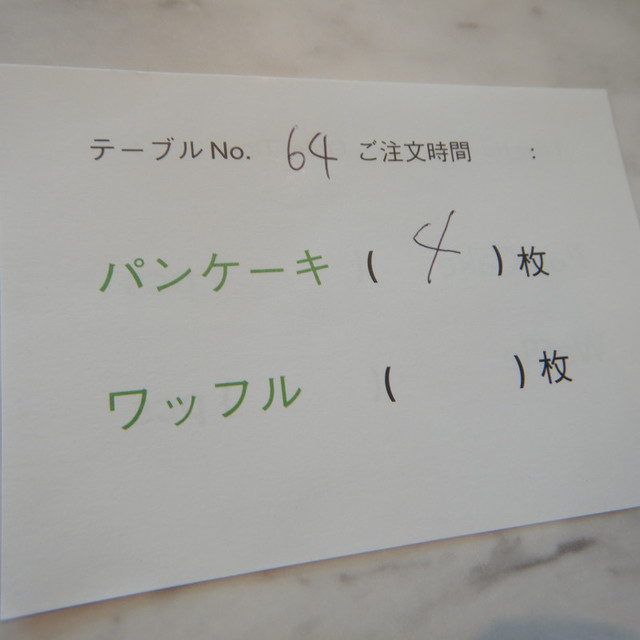 テーブルNo. 64 ご注文時間 :
パンケーキ ( 4 ) 枚
ワッフル ( ) 枚